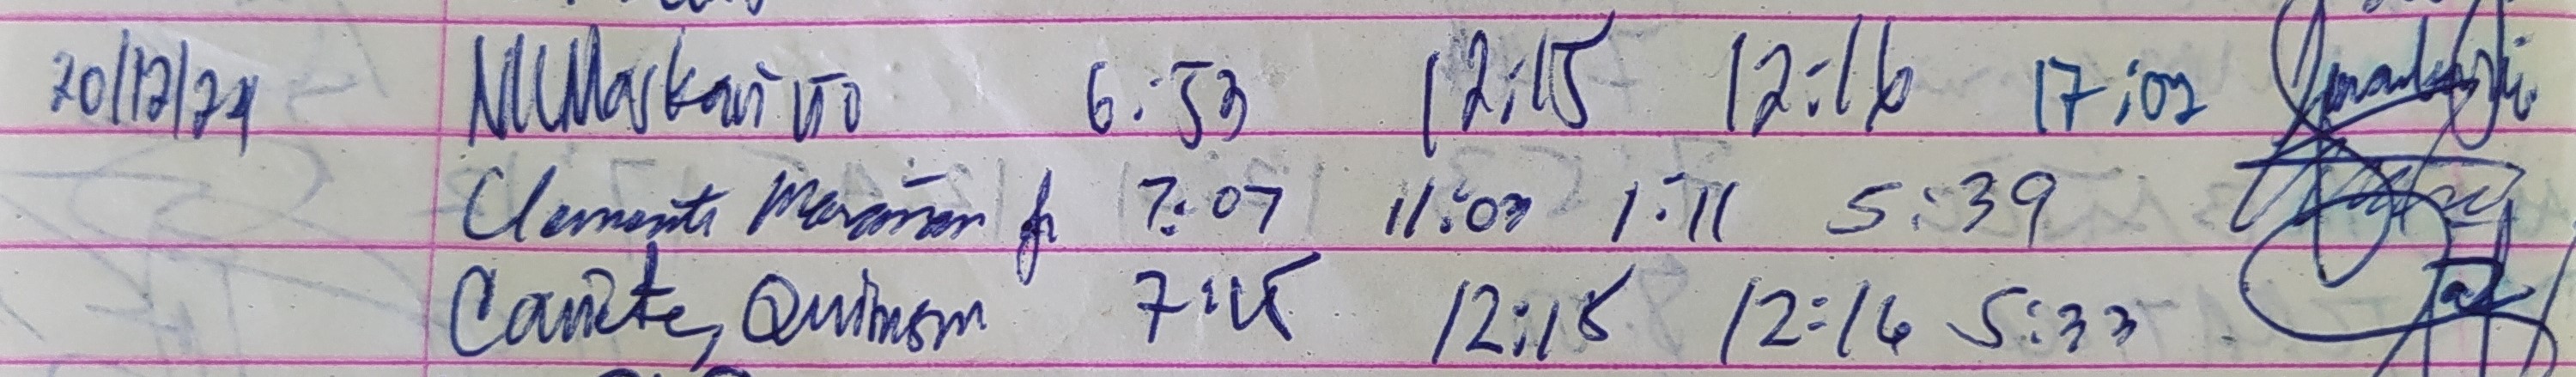 20/12/24 6:53 12:15 12:16 17:02
Clemente Marañan Jr 7:07 11:07 1:11 5:39
Cañete, Quimson 7:15 12:15 12:16 5:33